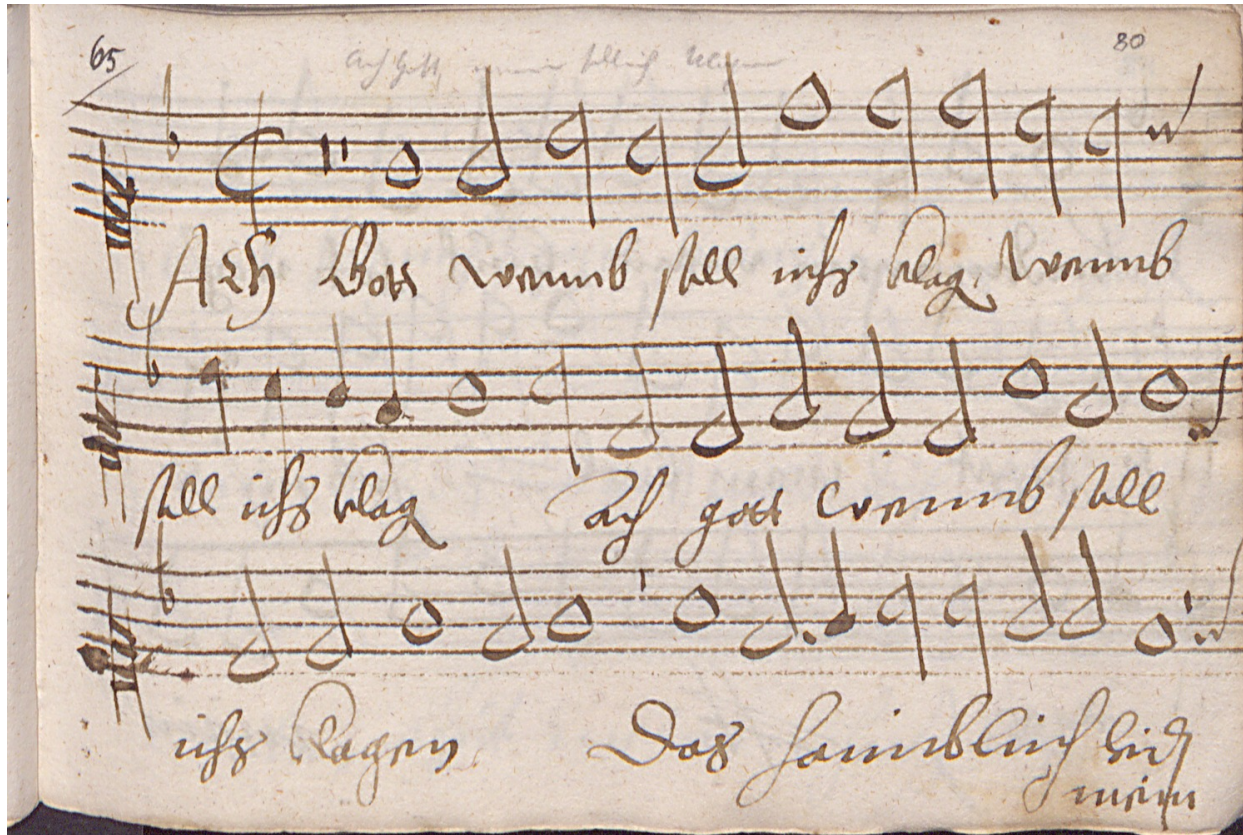 65 80
Ach Gott
Ach Gott wemb soll ichs klag wemb
soll ichs klag Ach gott wemb soll
ichs klagen Das haimblich leid
mein